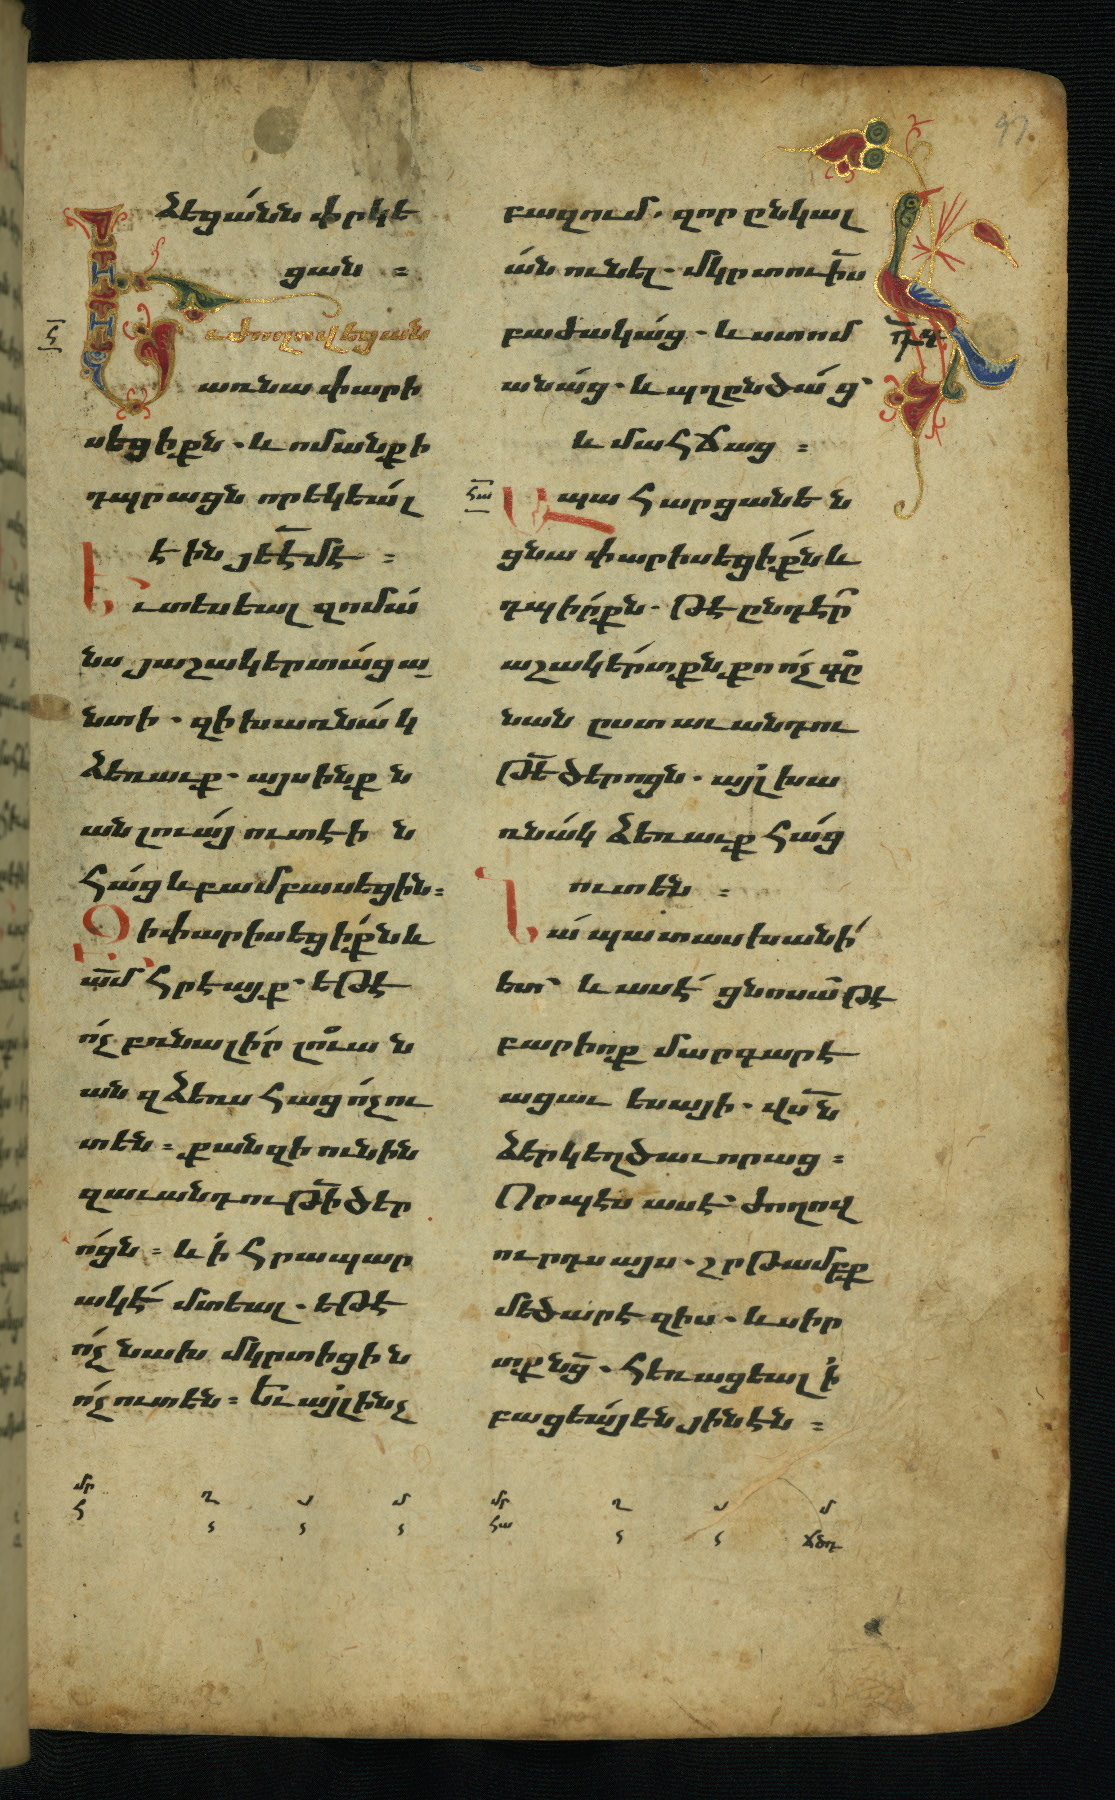 ձեցանն փրկե
ցան ։
Եւ ժողովեցան
առնա փարի
սեցիքն · և ոմանք ի
դպրացն որ եկեալ
էին յե՟էմէ ։
Եւ տեսեալ զոմա
նս յաշակերտաց ա
նտի · զի խառնակ
ձեռաւք · այսինքն
անլուայ ուտէին
հաց և բամբասեցին ։
Զի փարիսեցիքն և
ա՟մ հրէայք՝ եթէ
ոչ բռնալիր լուան
ան զձեռս հաց ոչ ու
տեն ։ քանզի ունին
զաւանդութի՟ ծեր
ոցն ։ և ի հրապար
ակէ մտեալ · եթէ
ոչ նախ մկրտիցին
ոչ ուտեն ։ Եւ այլ ինչ
մր ղ յ մ
հ
բազում · զոր ընկալ
ան ունել · մկրտութի՟ս
բաժակաց · և ստոմ
անաց · և պղընձաց՝
և մահճաց ։
հա
Ապա հարցանեն
ցնա փարիսեցիքն և
դպիրքն · թէ ընդէր՟
աշակերտքն քո ոչ գը
նան ըստ աւանդու
թե՟ ծերոցն · այլ խա
ռնակ ձեռաւք հաց
ուտեն ։
Նա պատասխանի
ետ՝ և ասէ ցնոսա՝ թէ
բարիոք մարգարէ
ացաւ եսայի · վս՟ն
ձեր կեղծաւորաց ։
Որպէս ասէ՝ ժողով
ուրդս այս · շրթամբք
մեծարէ զիս · և սիր
տք նց՟ · հեռացեալ ի
բացեայ են յինէն ։
մր ղ յ մ
հա ճծդ